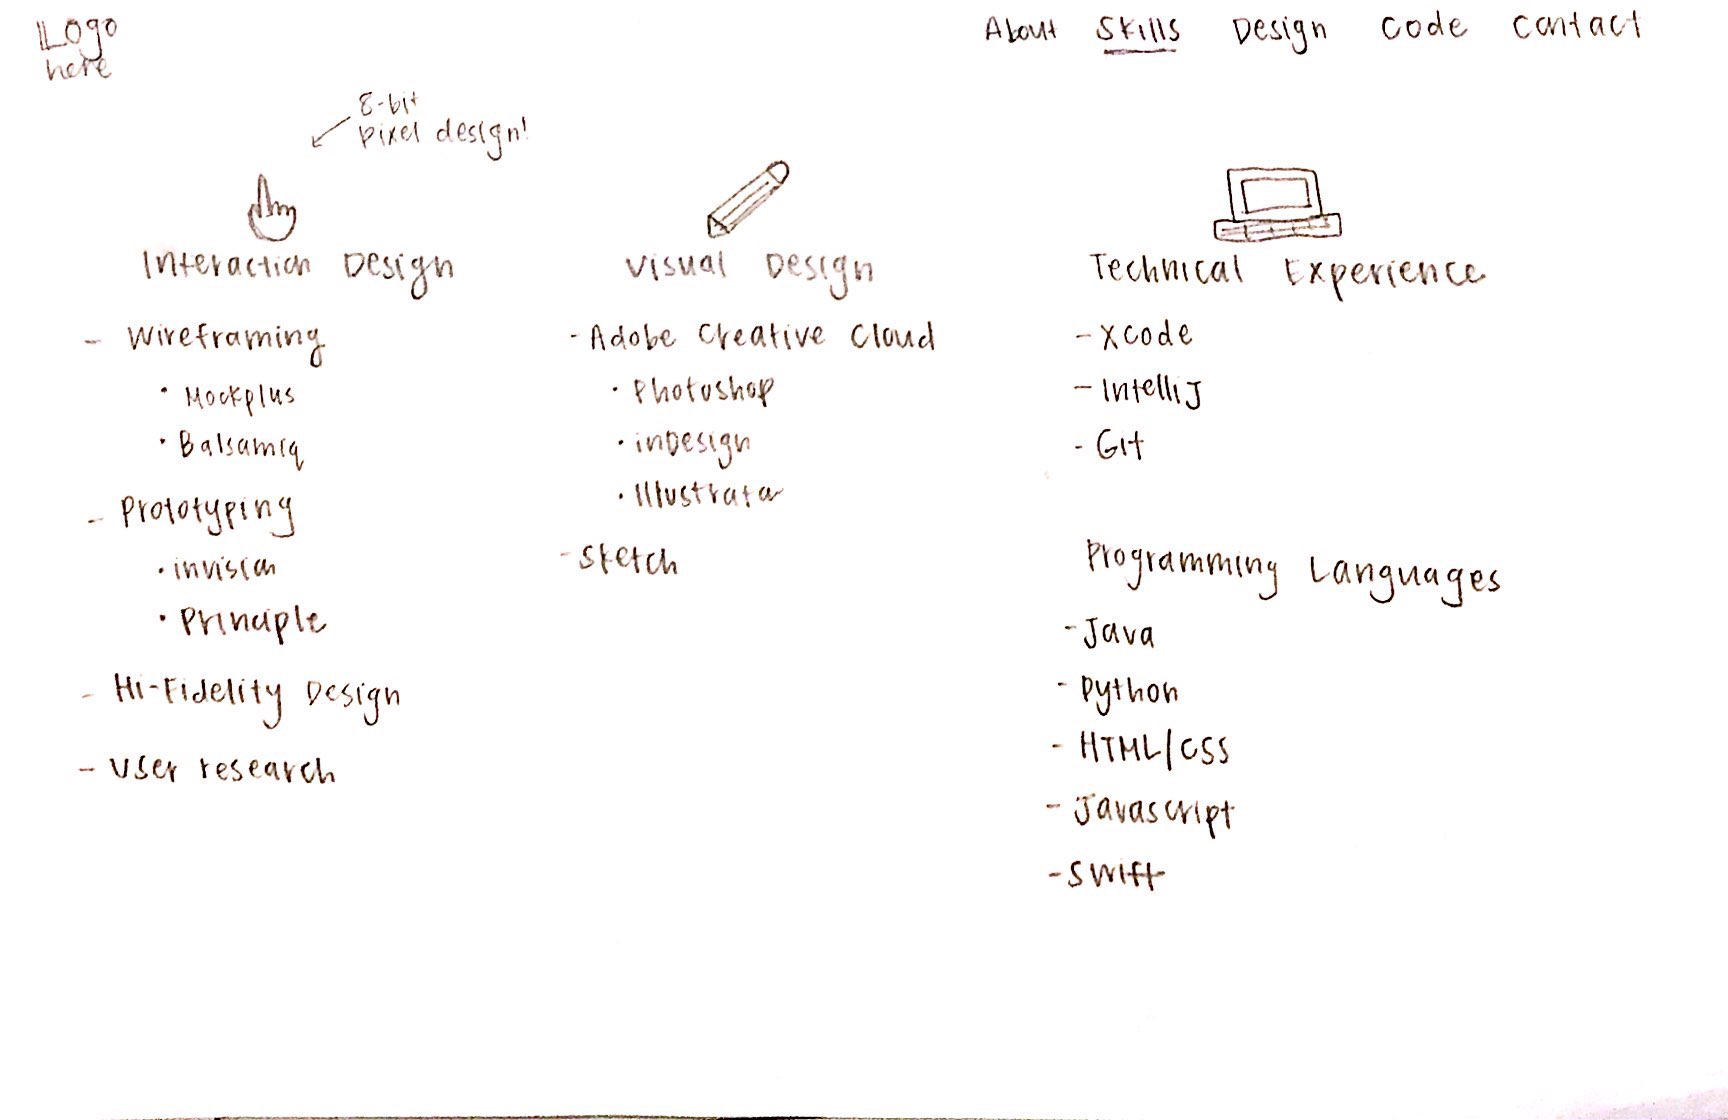 Logo
here
About Skills Design Code Contact
8-bit
pixel design!
Interaction Design
- Wireframing
• Mockplus
• Balsamiq
- Prototyping
• invision
• Principle
- Hi-Fidelity Design
- User research
Visual Design
- Adobe Creative Cloud
• Photoshop
• inDesign
• Illustrator
- Sketch
Technical Experience
- Xcode
- IntelliJ
- Git
Programming Languages
- Java
- Python
- HTML/CSS
- Javascript
- Swift